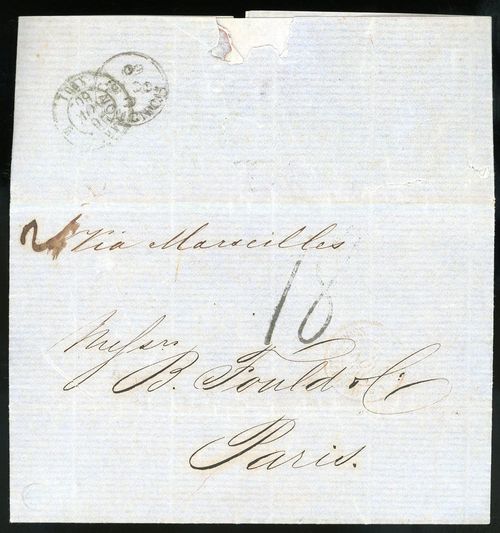 Via Marseilles
18
Messrs
B. Fould & Co
Paris.